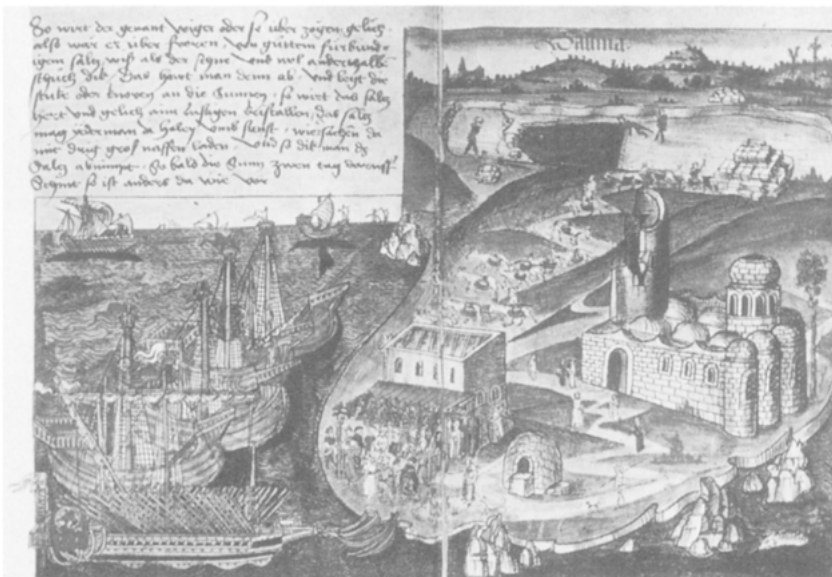 So wirt der genant wiger oder se über zogen gelich
alß wär er über froren von gůtem fürbünd
igem saltz wiß als der schne und wol anderhalbe
schůch dik Das howt man denn ab und leyt die
stuk oder knoren an die Sunnen so wirt das saltz
hert und gelich aim Cristallen Das saltz
mag yederman da holen umb sunst wir sachen da
groß laden Und so man dz
Saltz abnimpt So bald die Sunn zwen tag daruff
Schint so ist anders da wie vor
Salina